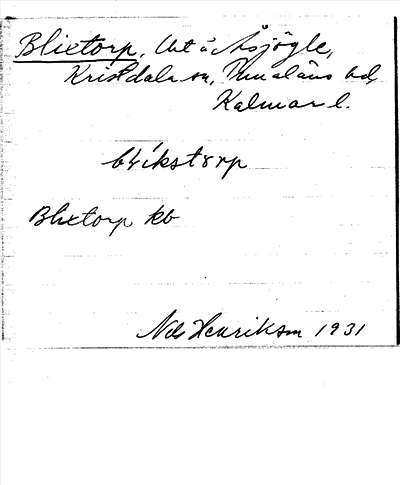 Blixtorp, Urt å Åsjögle,
Kristdala sn, Tunaläns hd,
Kalmar l.
blikstorp
Blixtorp kb
Nils Henrikson 1931